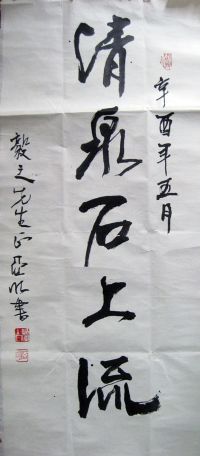 辛酉年五月
清泉石上流
毅之先生正 亚明書